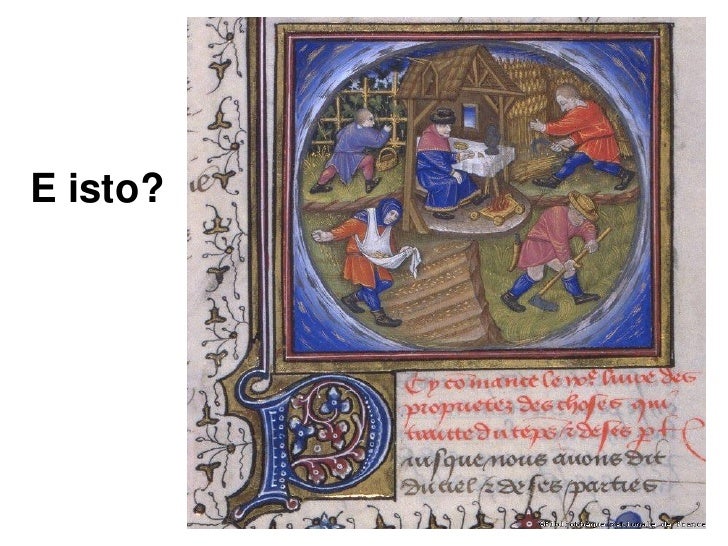 E isto?
Cy comance le ixe livre des
proprietez des choses qui
traitte du teps z de ses p
uis que nous avons dit
Du ciel z de ses parties
©Bibliothèque nationale de France